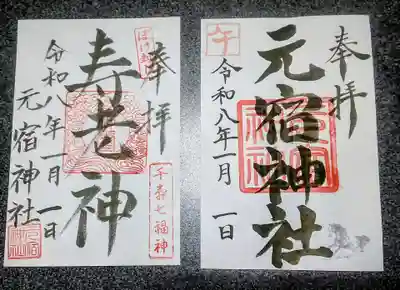 奉拝
元宿神社
午
令和八年一月一日
奉拝
ぼけ封じ
寿老神
千寿七福神
令和八年一月一日
元宿神社